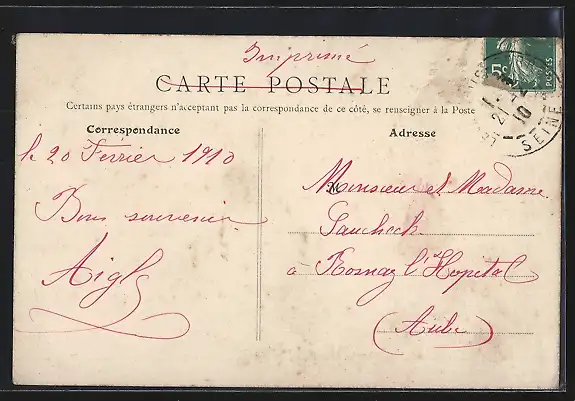 Imprimé
CARTE POSTALE
Certains pays étrangers n'acceptant pas la correspondance de ce côté, se renseigner à la Poste
Correspondance
Adresse
5c
POSTES
21-2
10
SEINE
le 20 Février 1910
Bon souvenir
Monsieur et Madame
à Rosnay l'Hopital
(Aube)